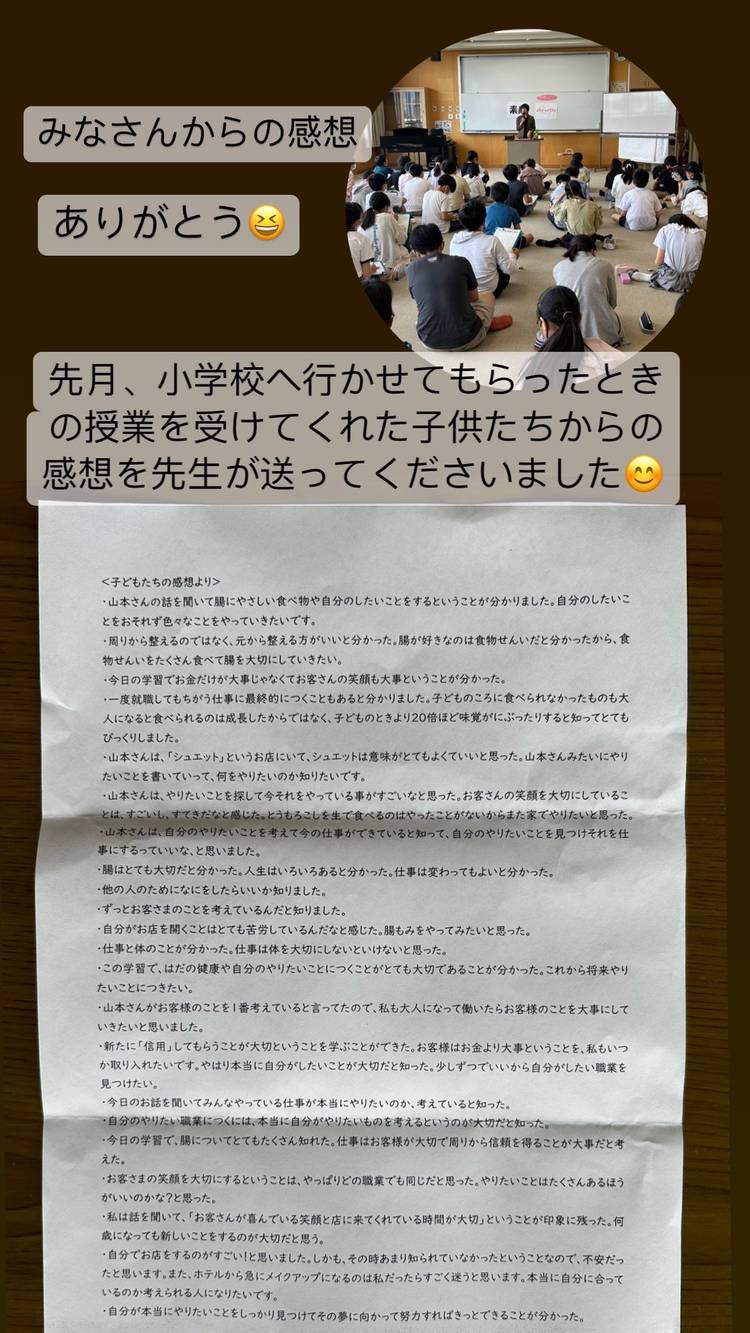 みなさんからの感想
ありがとう😆
素
先月、小学校へ行かせてもらったとき
の授業を受けてくれた子供たちからの
感想を先生が送ってくださいました😊
＜子どもたちの感想より＞
・山本さんの話を聞いて腸にやさしい食べ物や自分のしたいことをするということが分かりました。自分のしたいこ
とをおそれず色々なことをやっていきたいです。
・周りから整えるのではなく、元から整える方がいいと分かった。腸が好きなのは食物せんいだと分かったから、食
物せんいをたくさん食べて腸を大切にしていきたい。
・今日の学習でお金だけが大事じゃなくてお客さんの笑顔も大事ということが分かった。
・一度就職してもちがう仕事に最終的につくこともあると分かりました。子どものころに食べられなかったものも大
人になると食べられるのは成長したからではなく、子どものときより20倍ほど味覚がにぶったりすると知ってとても
びっくりしました。
・山本さんは、「シュエット」というお店にいて、シュエットは意味がとてもよくていいと思った。山本さんみたいにやり
たいことを書いていって、何をやりたいのか知りたいです。
・山本さんは、やりたいことを探して今それをやっている事がすごいなと思った。お客さんの笑顔を大切にしているこ
とは、すごいし、すてきだなと感じた。とうもろこしを生で食べるのはやったことがないからまた家でやりたいと思った。
・山本さんは、自分のやりたいことを考えて今の仕事ができていると知って、自分のやりたいことを見つけそれを仕
事にするっていいな、と思いました。
・腸はとても大切だと分かった。人生はいろいろあると分かった。仕事は変わってもよいと分かった。
・他の人のためになにをしたらいいか知りました。
・ずっとお客さまのことを考えているんだと知りました。
・自分がお店を開くことはとても苦労しているんだなと感じた。腸もみをやってみたいと思った。
・仕事と体のことが分かった。仕事は体を大切にしないといけないと思った。
・この学習で、はだの健康や自分のやりたいことにつくことがとても大切であることが分かった。これから将来やり
たいことにつきたい。
・山本さんがお客様のことを1番考えていると言ってたので、私も大人になって働いたらお客様のことを大事にして
いきたいと思いました。
・新たに「信用」してもらうことが大切ということを学ぶことができた。お客様はお金より大事ということを、私もいつ
か取り入れたいです。やはり本当に自分がしたいことが大切だと知った。少しずつでいいから自分がしたい職業を
見つけたい。
・今日のお話を聞いてみんなやっている仕事が本当にやりたいのか、考えていると知った。
・自分のやりたい職業につくには、本当に自分がやりたいものを考えるというのが大切だと知った。
・今日の学習で、腸についてとてもたくさん知れた。仕事はお客様が大切で周りから信頼を得ることが大事だと考
えた。
・お客さまの笑顔を大切にするということは、やっぱりどの職業でも同じだと思った。やりたいことはたくさんあるほう
がいいのかな?と思った。
・私は話を聞いて、「お客さんが喜んでいる笑顔と店に来てくれている時間が大切」ということが印象に残った。何
歳になっても新しいことをするのが大切だと思う。
・自分でお店をするのがすごい!と思いました。しかも、その時あまり知られていなかったということなので、不安だっ
たと思います。また、ホテルから急にメイクアップになるのは私だったらすごく迷うと思います。本当に自分に合って
いるのか考えられる人になりたいです。
・自分が本当にやりたいことをしっかり見つけてその夢に向かって努力すればきっとできることが分かった。